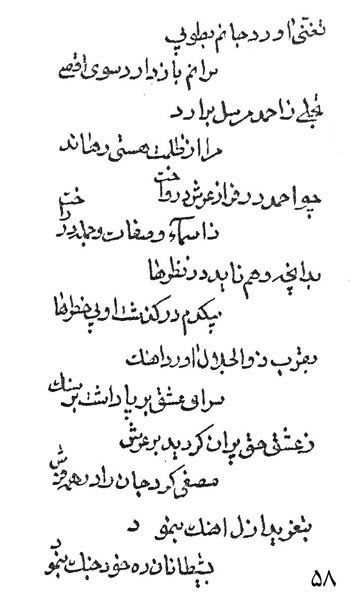 تغنی اورد جانم بطوبی
برانم باز دارد سوی اقصی
تجلی ز احمد مرسل برارد
مرا از ظلمت هستی رهاند
چو احمد در فراز عرش در واخت
ز اسماء و صفات و جمله در
بدانچه وهم ناید در نظرها
بیکدم در گذشت او بی خطرها
بقرب ذوالجلال اورد اهنک
سرای عشق بر پا داشت بی سنک
ز عشق حق پران کردید بر عرش
مصفی کرد جان را در همه فرش
بتغرید ازل اهنک بنمود
بشیطانان ره خود جنک بنمود
۵۸